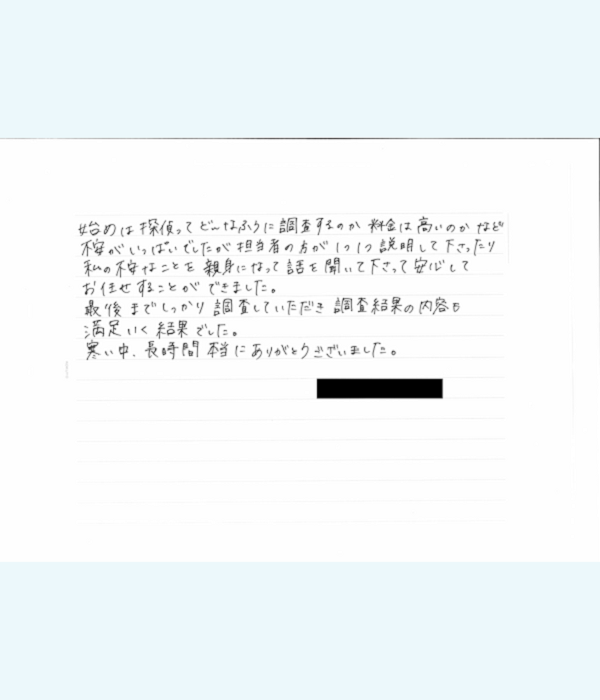 始めは探偵ってどんなふうに調査するのか 料金は高いのか など
不安がいっぱいでしたが担当者の方が1つ1つ説明して下さったり
私の不安なことを親身になって話を聞いて下さって安心して
お任せすることができました。
最後までしっかり調査していただき調査結果の内容も
満足いく結果でした。
寒い中、長時間本当にありがとうございました。